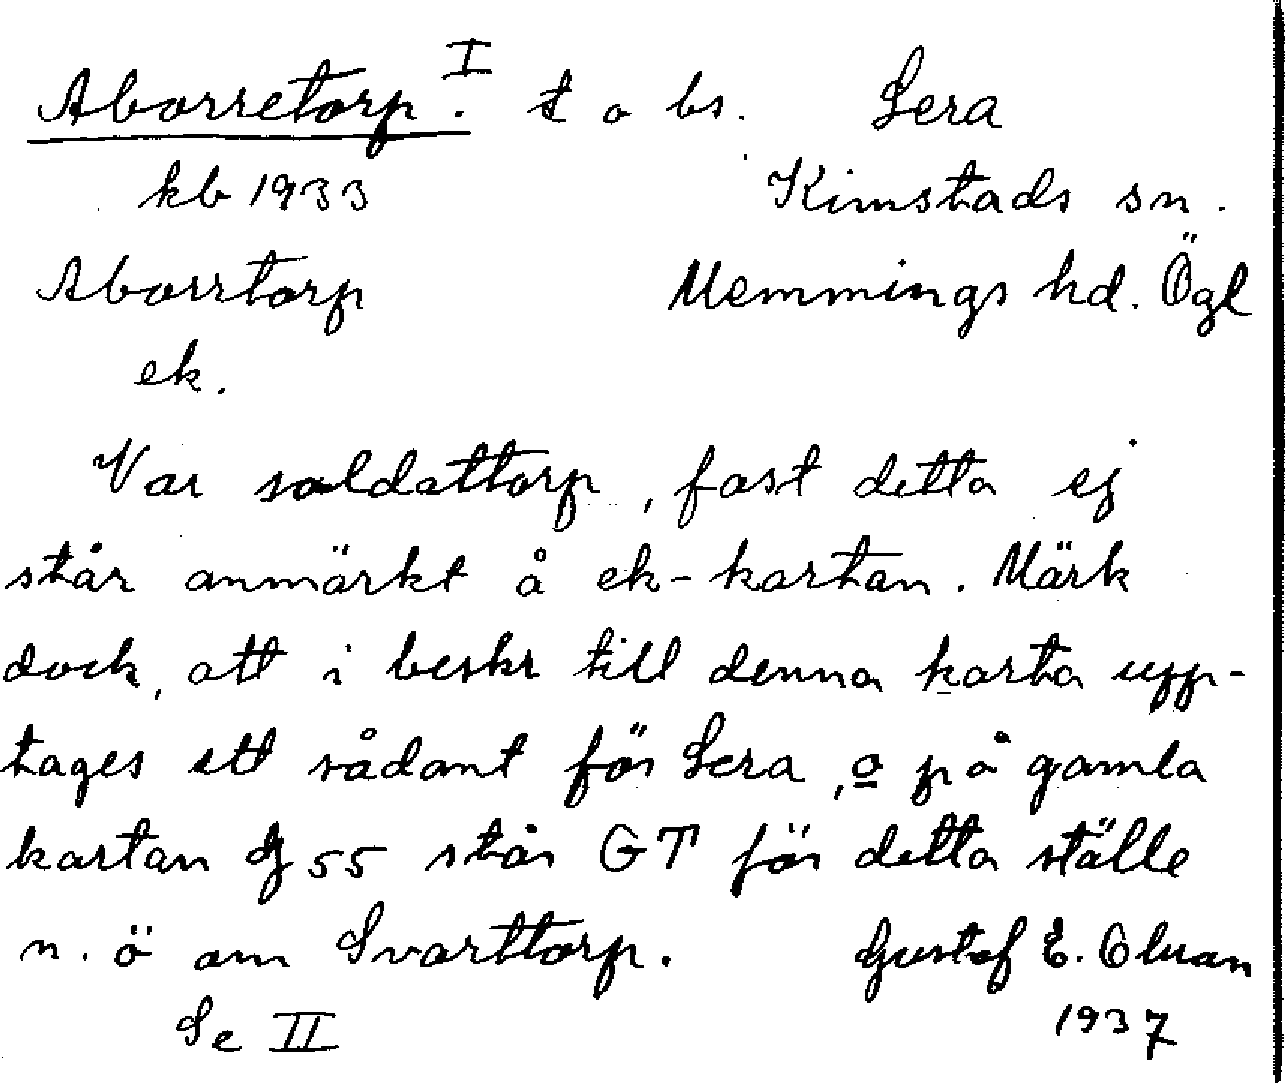 Aborretorp. I t o bs. Sera
kb 1933 Kimstads sn.
Aborrtorp Memmings hd. Ögl
ek.
Var soldattorp, fast detta ej
står anmärkt å ek-kartan. Märk
dock, att i beskr till denna karta upp-
tages ett sådant för Sera, o på gamla
kartan 55 står GT för detta ställe
n. ö om Svarttorp. Gustaf E. Olsson
Se II 1937